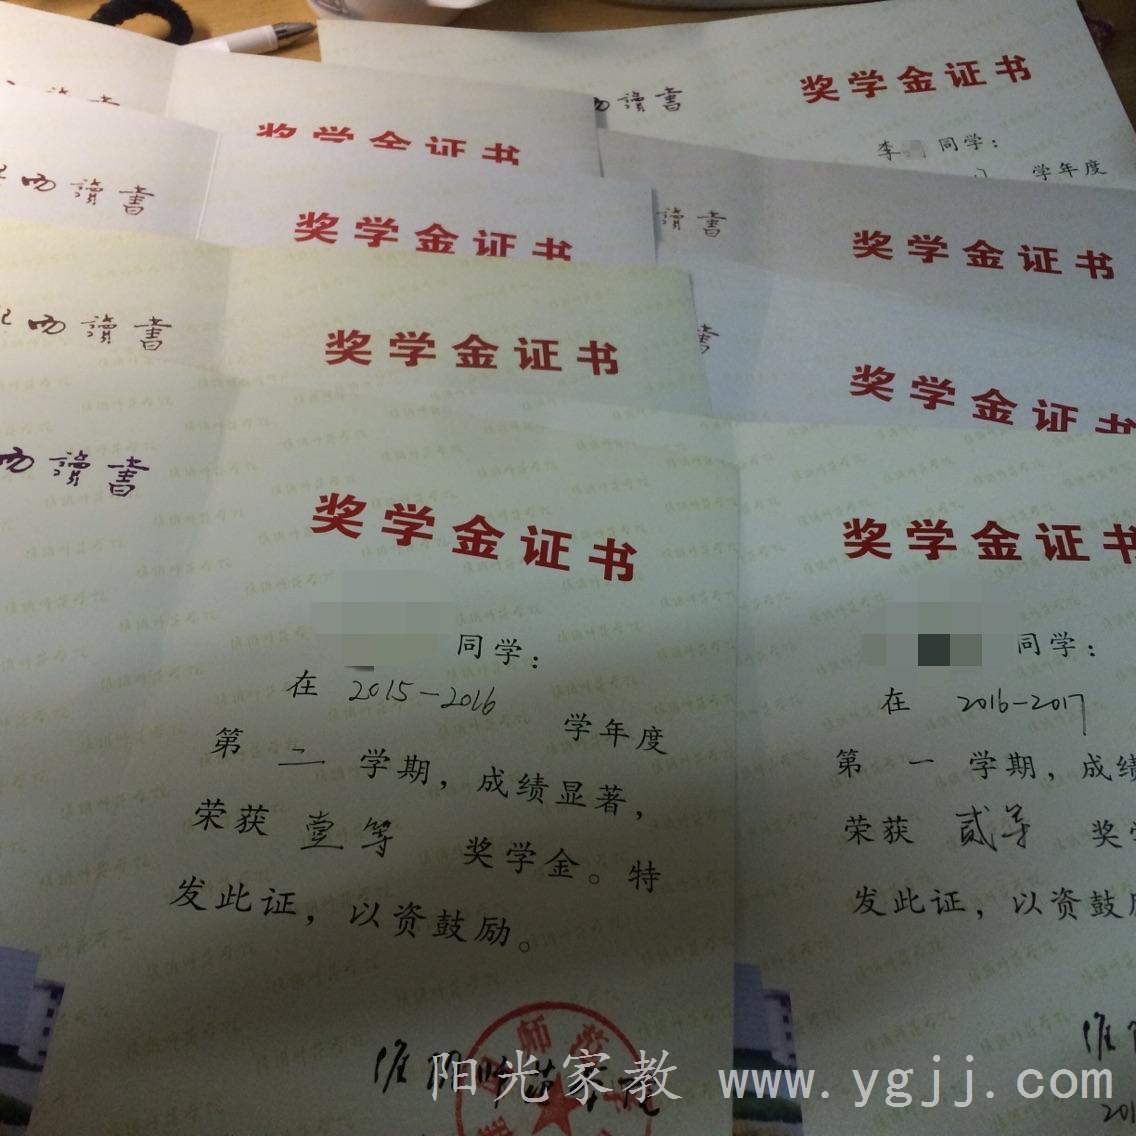 奖学金证书
讀書
李 同学：
学年度
奖学金证书
西讀書
奖学金证书
讀書
奖学金证书
西讀書
奖学金证书
書
奖学金证书
西讀書
奖学金证书
同学：
在 2015-2016 学年度
第 二 学期，成绩显著，
荣获 壹等 奖学金。特
发此证，以资鼓励。
淮阴师范学院
奖学金证书
同学：
在 2016-2017
第 一 学期，成绩
荣获 贰等 奖学
发此证，以资鼓
淮
201
阳光家教 www.ygjj.com